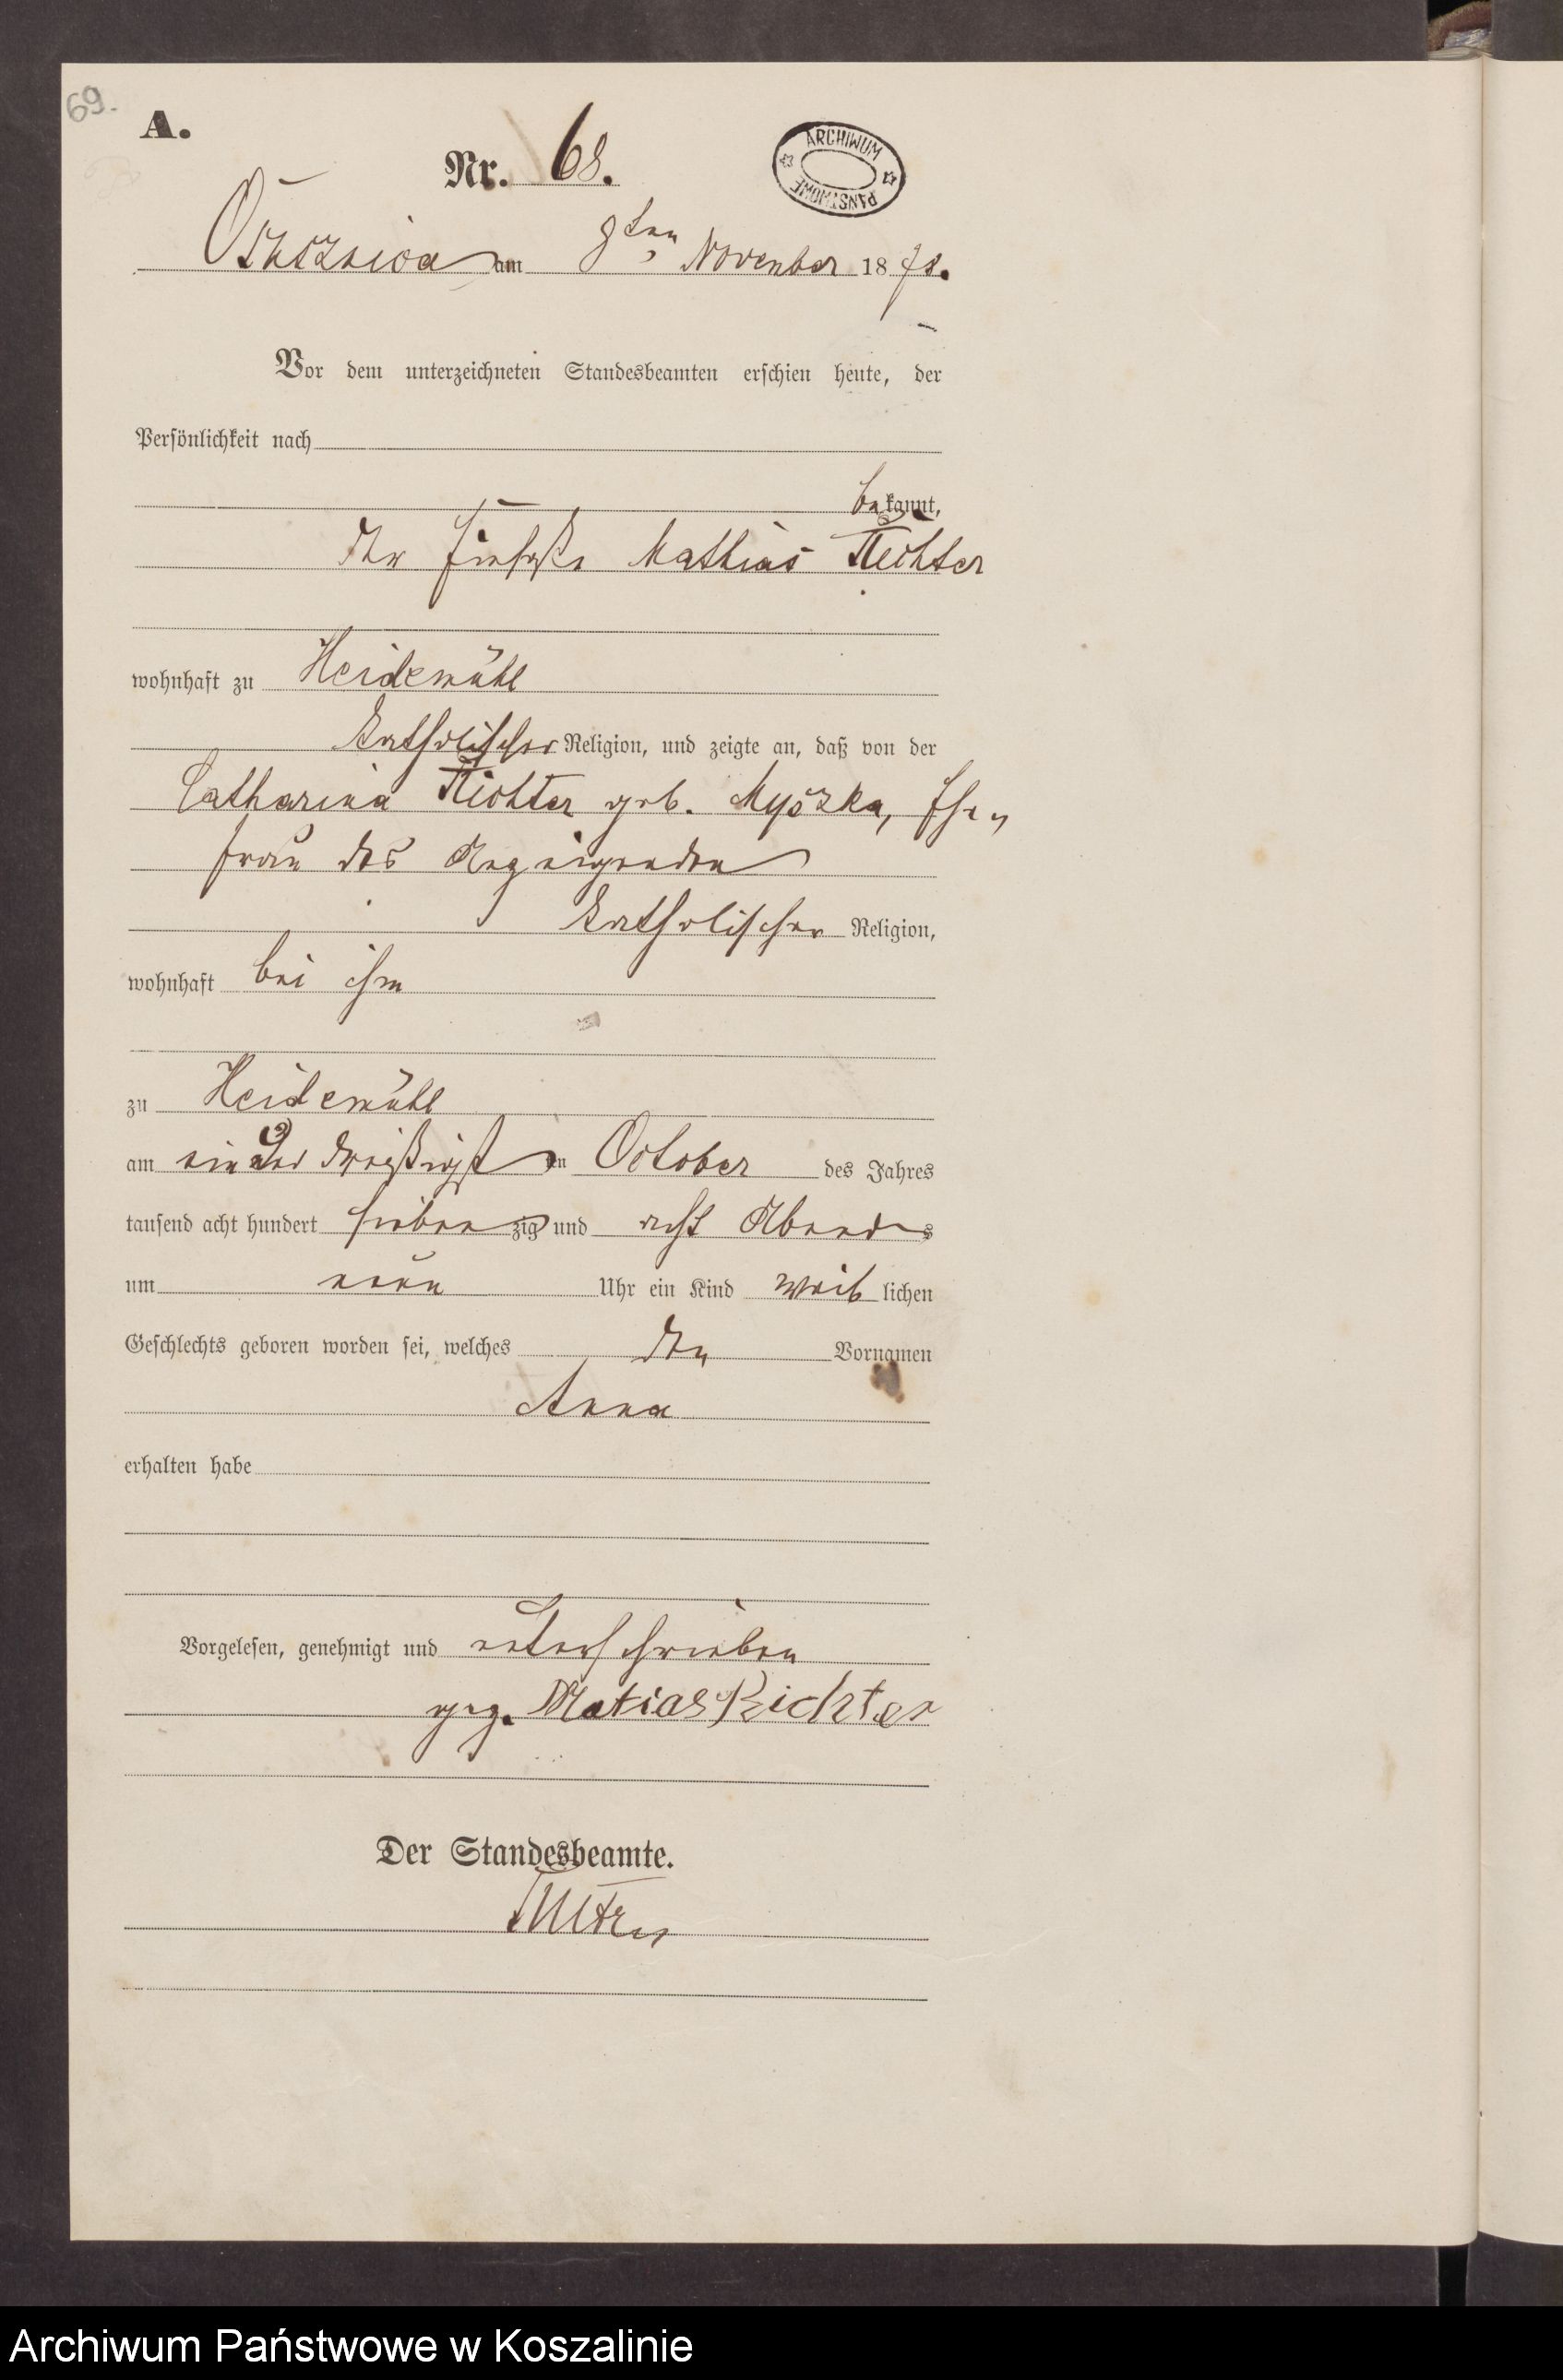 69.
A.
Nr. 68.
ARCHIWUM PAŃSTWOWE
Osusznica am 8ten November 1878.
Vor dem unterzeichneten Standesbeamten erschien heute, der
Persönlichkeit nach
bekannt,
der Mathias Richter
wohnhaft zu Heidemühl
katholischer Religion, und zeigte an, daß von der
Catharina Richter geb. Myszka, Ehe„
frau des Anzeigenden
katholischer Religion,
wohnhaft bei ihm
zu Heidemühl
am ein und dreißigsten October des Jahres
tausend acht hundert siebenzig und acht Abends
um neun Uhr ein Kind weiblichen
Geschlechts geboren worden sei, welches den Vornamen
Anna
erhalten habe
Vorgelesen, genehmigt und unterschrieben
gez. Matias Richter
Der Standesbeamte.
Archiwum Państwowe w Koszalinie